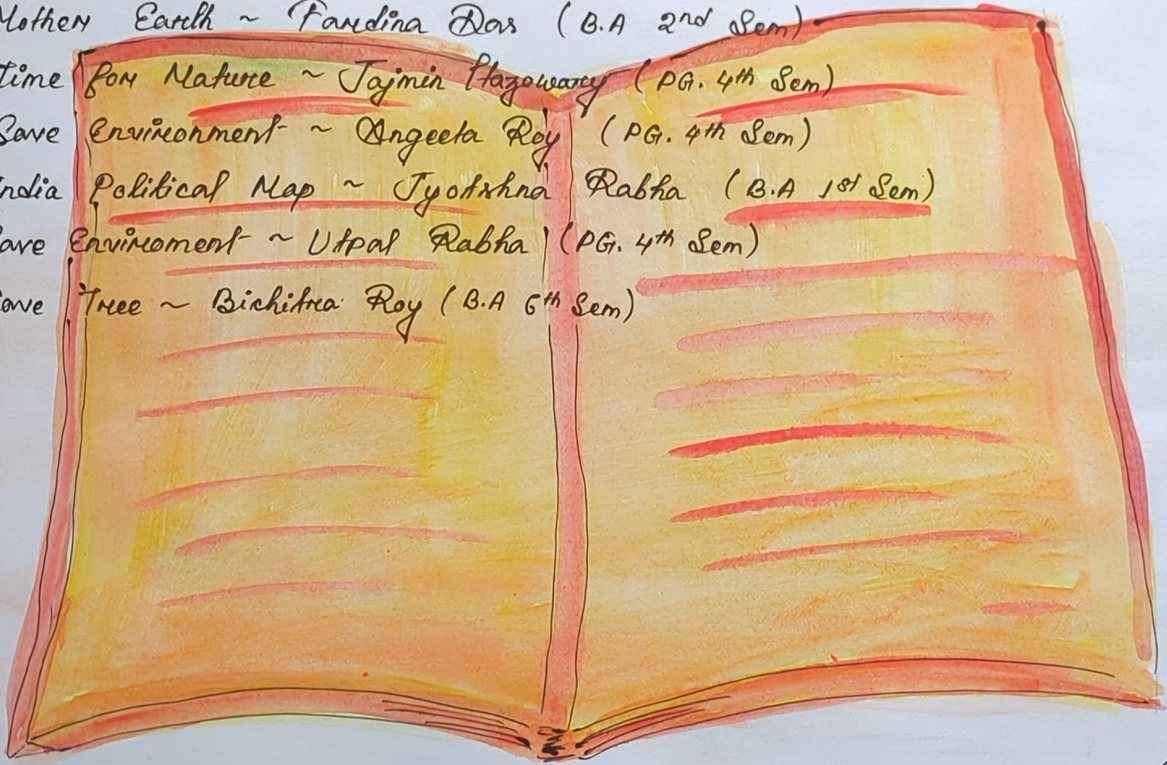 Mother Earth ~ Fardina Das (B.A 2nd Sem)
Time for Nature ~ Jajmin Hazowary (PG. 4th Sem)
Save Environment ~ Angeeta Roy (PG. 4th Sem)
India Political Map ~ Jyotishna Rabha (B.A 1st Sem)
ave Enviroment ~ Utpal Rabha (PG. 4th Sem)
ave Tree ~ Bichitra Roy (B.A 6th Sem)